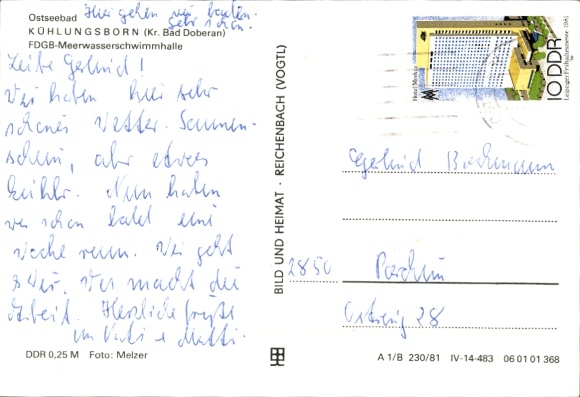 Hier gehen wir baden.
Sehr schön.
Ostseebad
KÜHLUNGSBORN (Kr. Bad Doberan)
FDGB-Meerwasserschwimmhalle
Liebe Gerlind!
Wir haben hier sehr
schönes Wetter. Sonnen-
schein, aber etwas
kühler. Nun haben
wir schon bald eine
Woche rum. Wie geht
es Dir. Was macht die
Arbeit. Herzliche Grüße
von Vati u Mutti.
DDR 0,25 M Foto: Melzer
BILD UND HEIMAT · REICHENBACH (VOGTL)
Hotel Merkur
10 DDR
Leipziger Frühjahrsmesse 1981
Gerlind Bachmann
2850 Parchim
28
A 1/B 230/81 IV-14-483 06 01 01 368